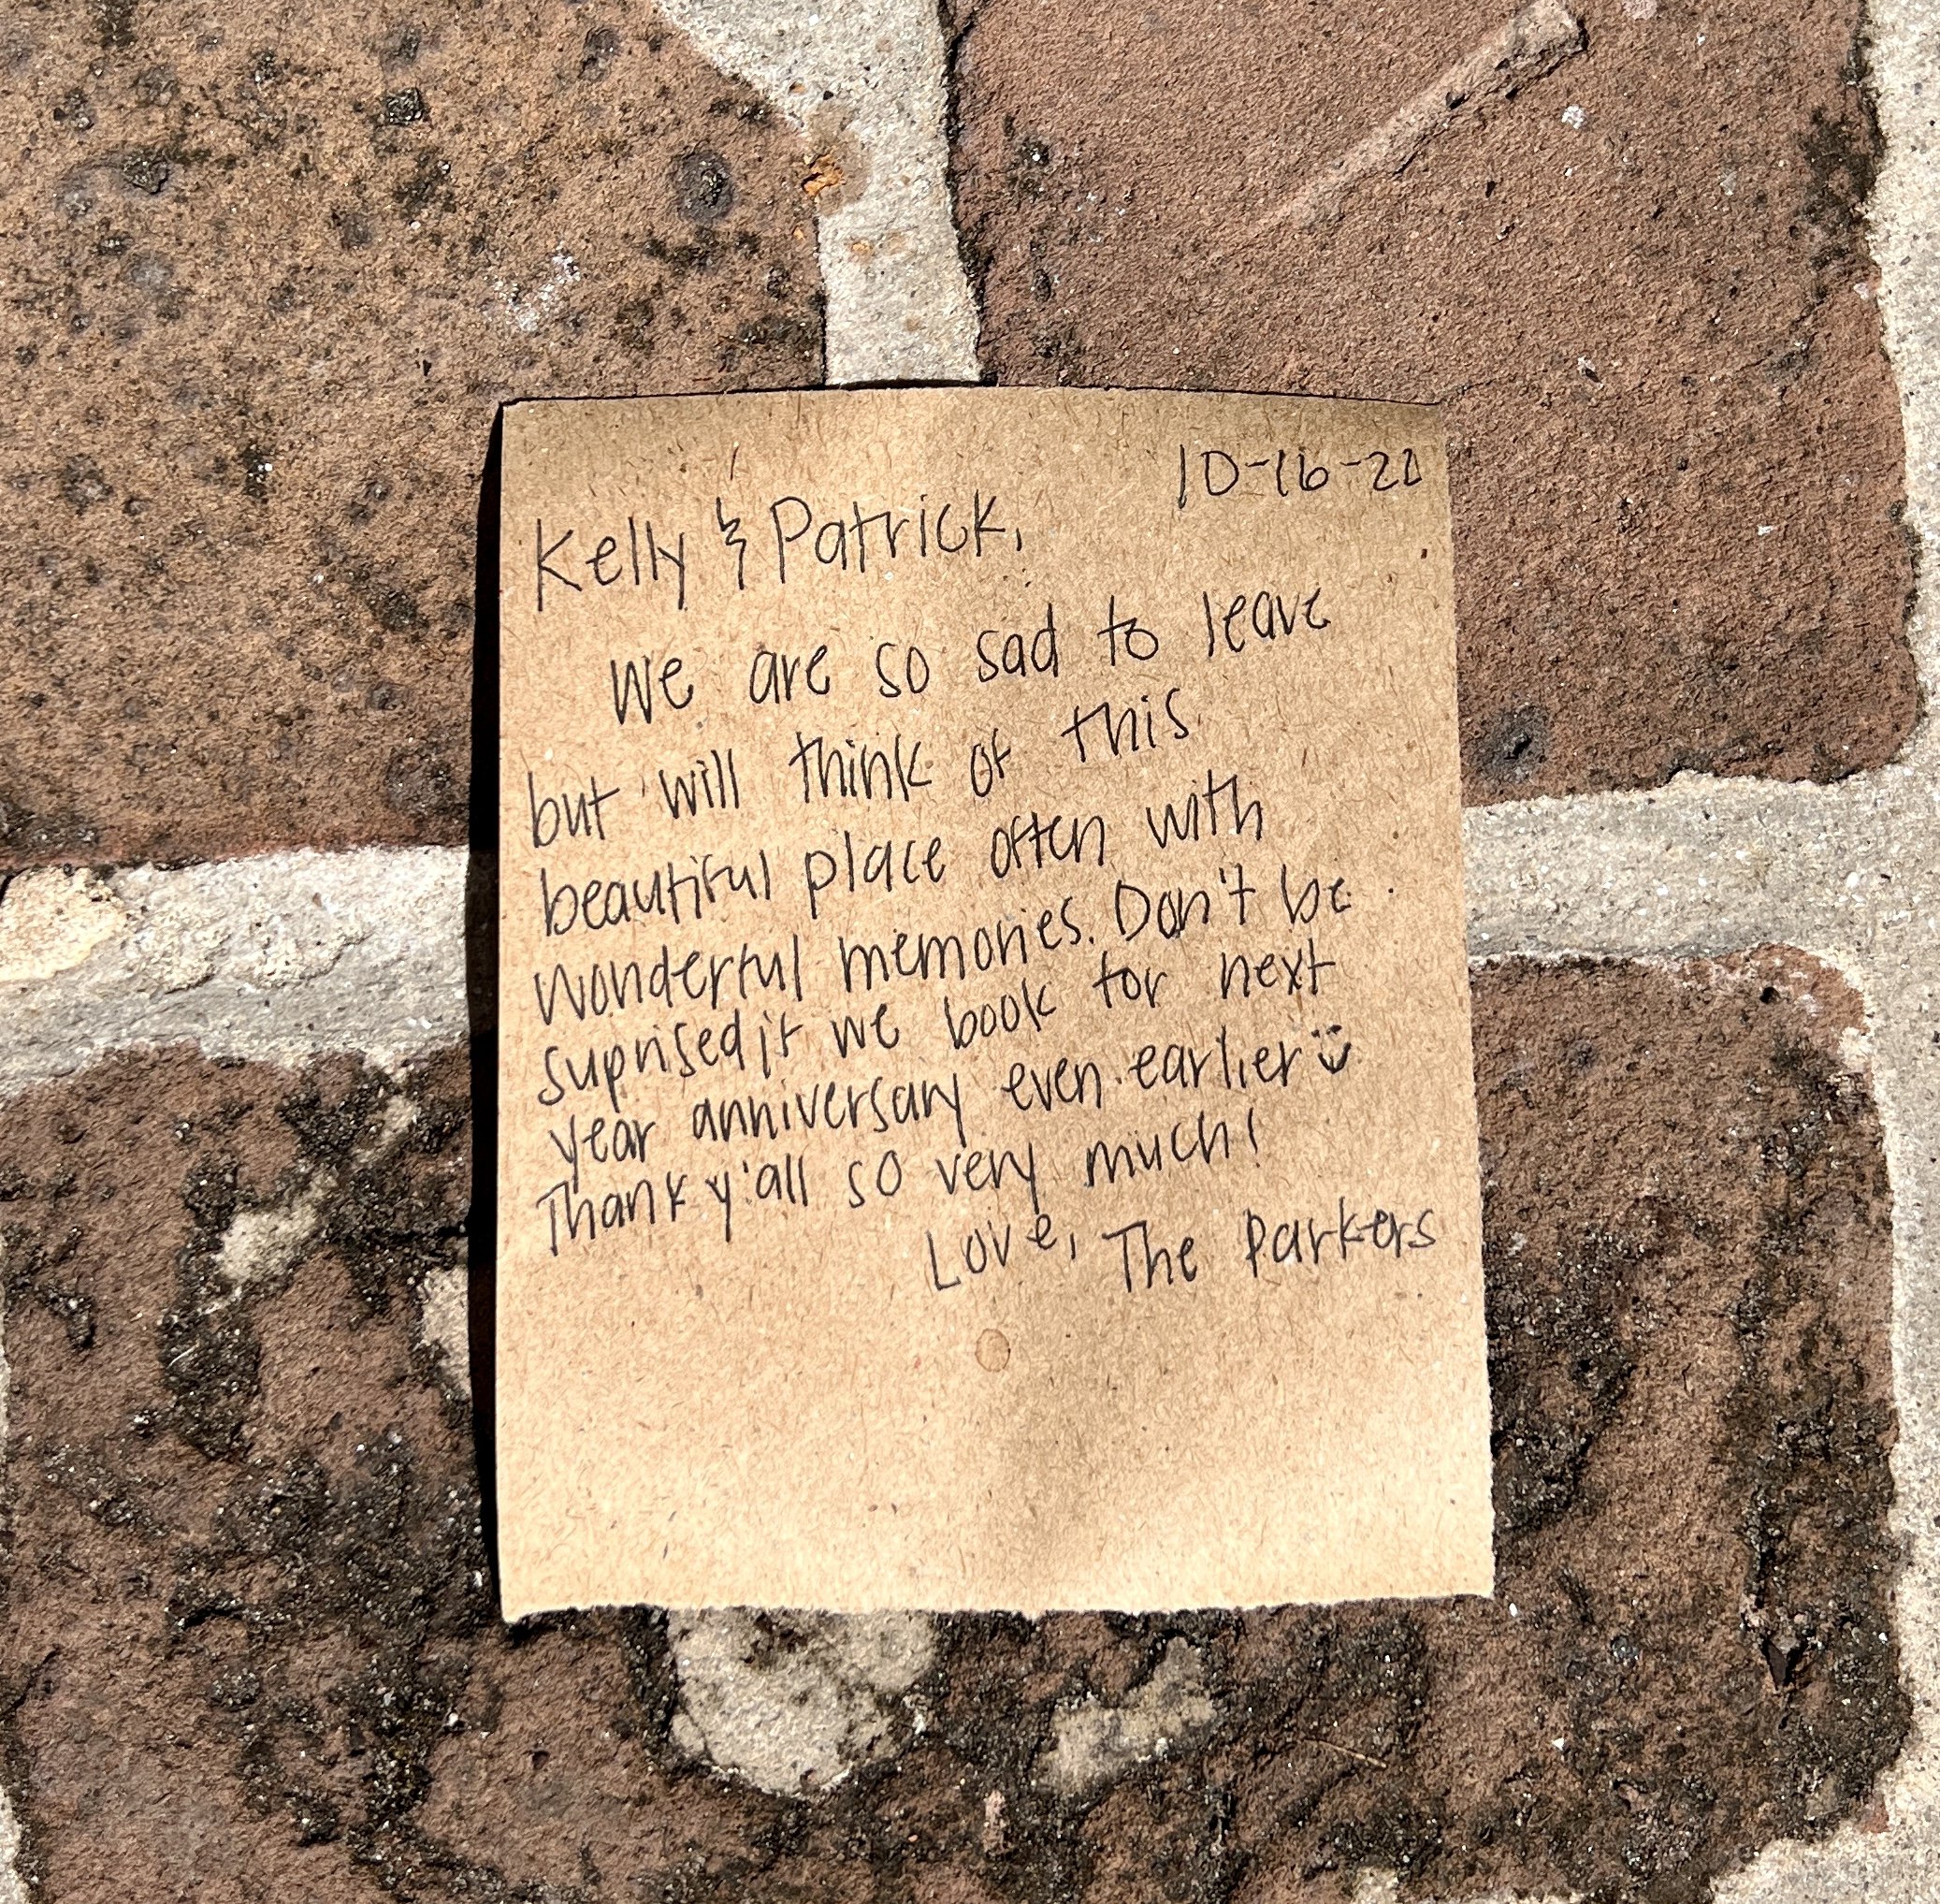 10-16-22
Kelly & Patrick,
We are so sad to leave
but will think of this
beautiful place often with
wonderful memories. Don't be
suprised if we book for next
year anniversary even earlier :)
Thank y'all so very much!
Love, The Parkers